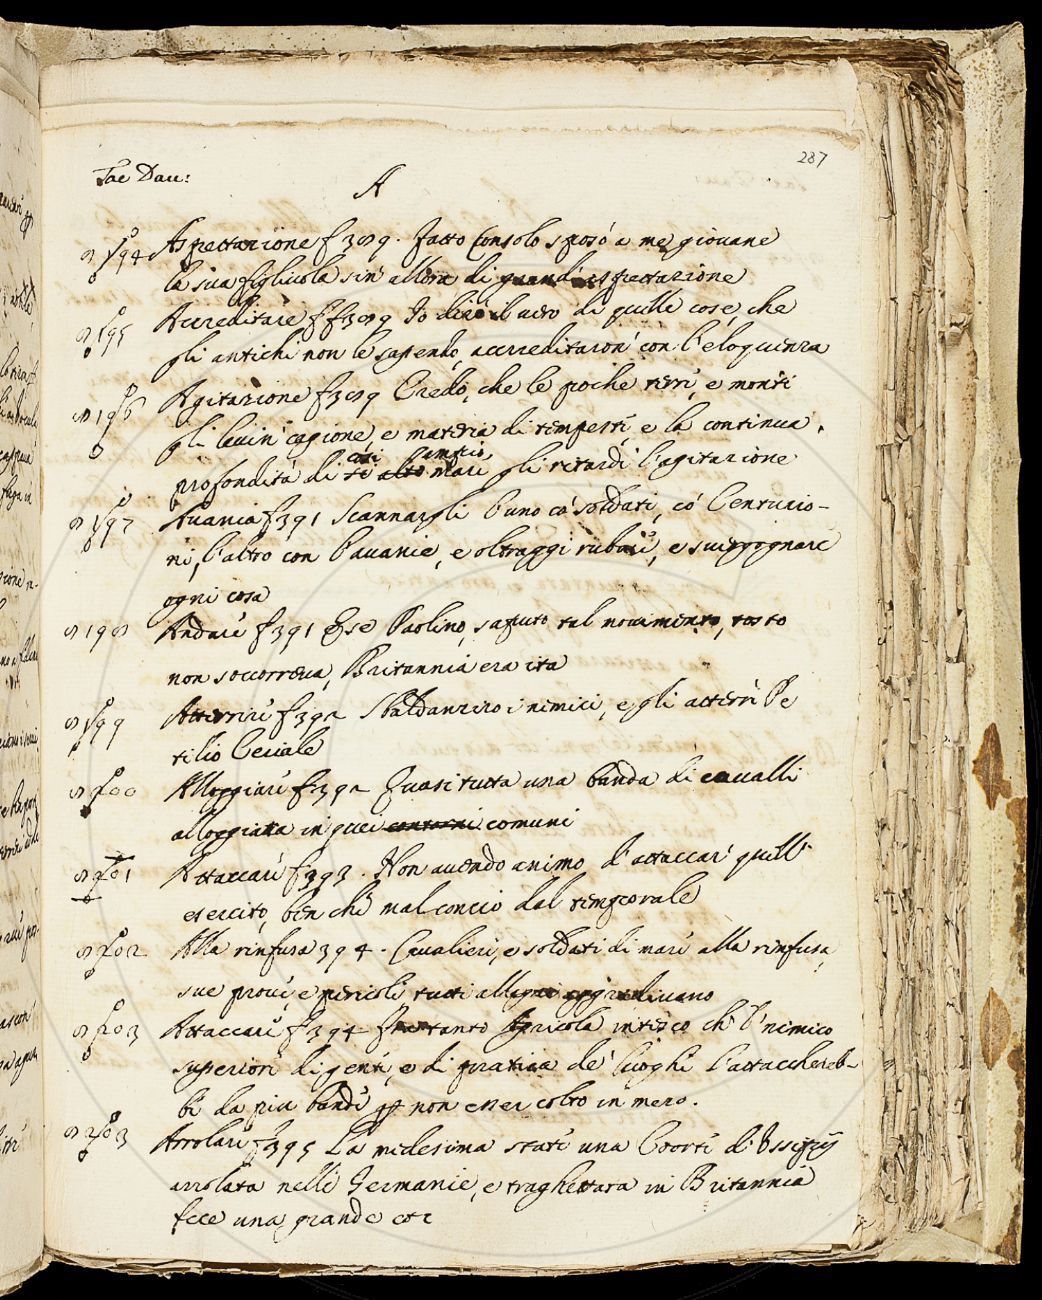 287
Tac Dau:
A
8194 Aspettazione f 389. Fatto Consolo sposò a me giovane
la sua figliuola sin' allora di grand' espettazione
8195 Accreditare f 389 Io dirò il vero di quelle cose, che
gli antichi non le sapendo, accreditaron' con l'eloquenza
8196 Agitazione f 389 Credo, che le poche terre, e monti
gli levin' cagione, e materia di tempeste, e la continua
così ampio
profondità di ti alto mare gli ritardi l'agitazione
8197 Avania f 391 Scannargli l'uno co' soldati, co' Centurio-
ni, l'altro con l'avanie, e oltraggi rubare, e svergognare
ogni cosa
8198 Andare f 391 E se Paolino, saputo tal movimento, tosto
non soccorreva, Britannia era ita
8199 Atterrire f 392 Sbaldanziro i nimici, e gli atterrì Pe
tilio Ceriale
8200 Alloggiare f 392 Quasi tutta una banda di cavalli
alloggiata in quei contorni comuni
8201 Attaccare f 393. Non avendo animo d'attaccar' quell'
esercito, ben che mal concio dal temporale
8202 Alla rinfusa 394. Cavalieri, e soldati di mare alla rinfusa,
sue prove, e pericoli tutti allegri
8203 Attaccare f 394 Agricola inteso che l'nimico
superiore di gente, e di pratica de' luoghi l'attaccareb-
be da più bande p non esser colto in mezo.
8203 Arrolare f 395 La medesima state una Coorte d'Issipij
arrolata nelle Germanie, e traghettata in Britannia
fece una grande etc